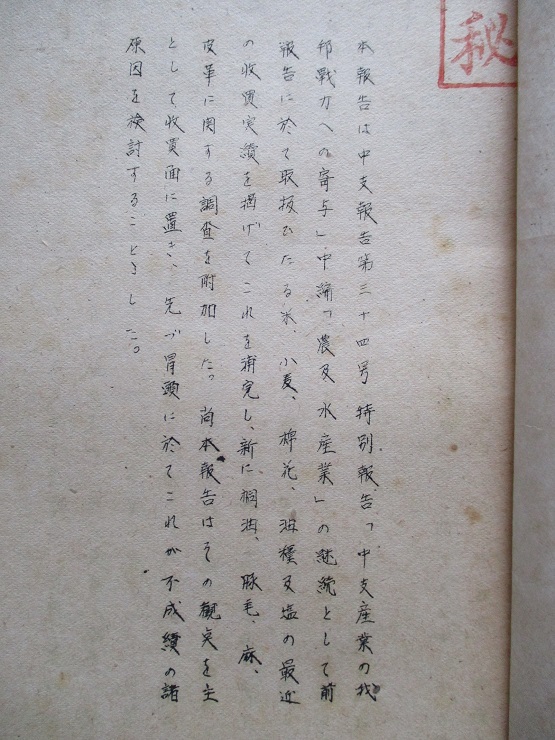 秘
本報告は中支報告第三十四号特別報告「中支産業の我
邦戰力への寄与」中論「農及水産業」の継続として前
報告に於て取扱ひたる米、小麦、棉花、油種及塩の最近
の收買実績を掲げてこれを補完し、新に桐油、豚毛、麻、
皮革に関する調査を附加した。尚本報告はその観点を主
として收買面に置き、先づ冒頭に於てこれが不成績の諸
原因を検討することゝした。